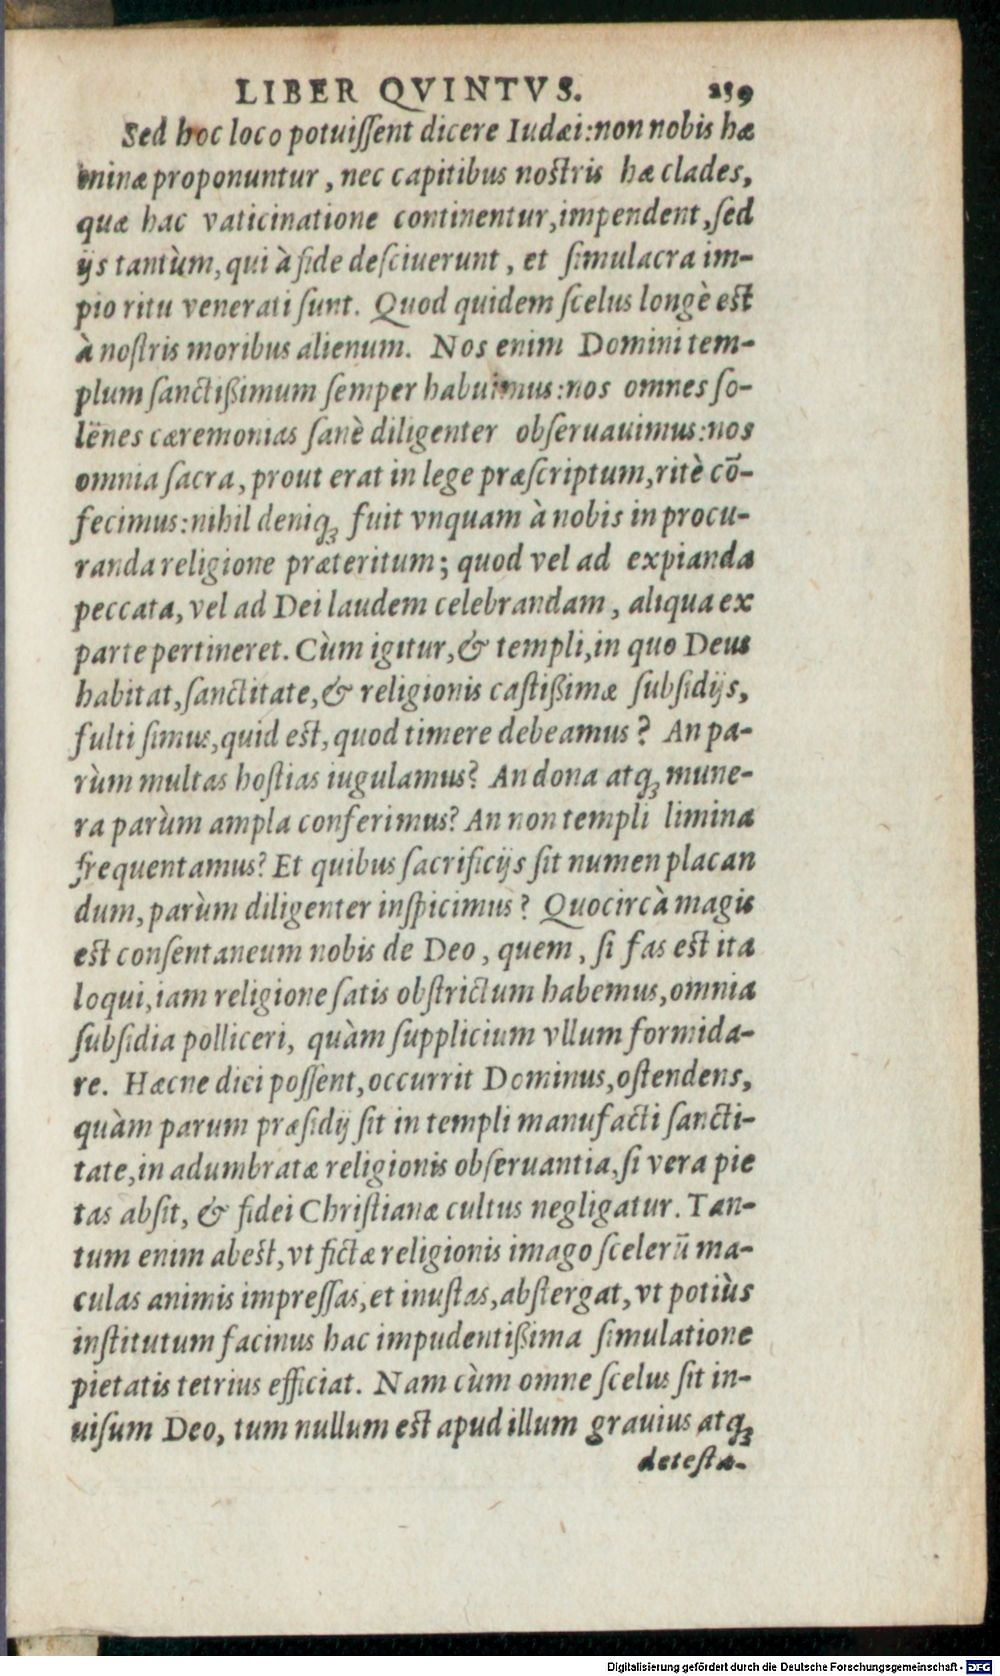 LIBER QVINTVS. 259
Sed hoc loco potuiſſent dicere Iudæi: non nobis hæ
minæ proponuntur, nec capitibus noſtris hæ clades,
quæ hac vaticinatione continentur, impendent, ſed
ijs tantùm, qui à fide deſciuerunt, et ſimulacra im-
pio ritu venerati ſunt. Quod quidem ſcelus longè eſt
à noſtris moribus alienum. Nos enim Domini tem-
plum ſanctißimum ſemper habuimus: nos omnes ſo-
lēnes cæremonias ſanè diligenter obſeruauimus: nos
omnia ſacra, prout erat in lege præſcriptum, ritè cō-
fecimus: nihil deniqꝫ fuit vnquam à nobis in procu-
randa religione præteritum; quod vel ad expianda
peccata, vel ad Dei laudem celebrandam, aliqua ex
parte pertineret. Cùm igitur, & templi, in quo Deus
habitat, ſanctitate, & religionis caſtißimæ ſubſidijs,
fulti ſimus, quid eſt, quod timere debeamus? An pa-
rùm multas hoſtias iugulamus? An dona atqꝫ mune-
ra parùm ampla conferimus? An non templi limina
frequentamus? Et quibus ſacrificijs ſit numen placan
dum, parùm diligenter inſpicimus? Quocircà magis
eſt conſentaneum nobis de Deo, quem, ſi fas eſt ita
loqui, iam religione ſatis obſtrictum habemus, omnia
ſubſidia polliceri, quàm ſupplicium vllum formida-
re. Hæcne dici poſſent, occurrit Dominus, oſtendens,
quàm parum præſidij ſit in templi manufacti ſancti-
tate, in adumbratæ religionis obſeruantia, ſi vera pie
tas abſit, & fidei Chriſtianæ cultus negligatur. Tan-
tum enim abeſt, vt fictæ religionis imago ſcelerū ma-
culas animis impreſſas, et inuſtas, abſtergat, vt potiùs
inſtitutum facinus hac impudentißima ſimulatione
pietatis tetrius efficiat. Nam cùm omne ſcelus ſit in-
uiſum Deo, tum nullum eſt apud illum grauius atqꝫ
deteſta-
Digitalisierung gefördert durch die Deutsche Forschungsgemeinschaft - DFG